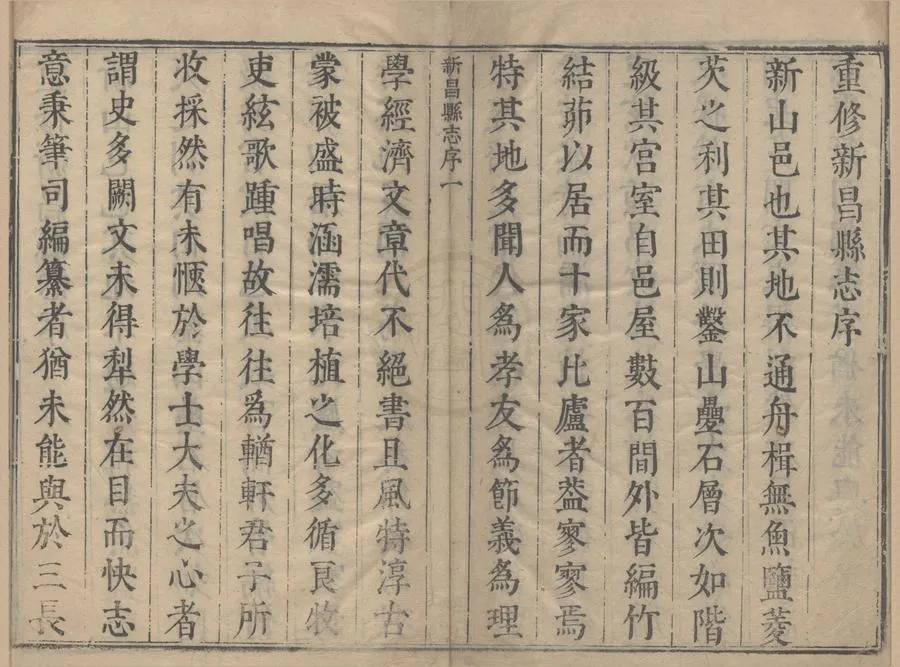 重修新昌縣志序
新山邑也其地不通舟楫無魚鹽菱
芡之利其田則鑿山疊石層次如階
級其宮室自邑屋數百間外皆編竹
結茆以居而十家比廬者葢寥寥焉
特其地多聞人為孝友為節義為理
新昌縣志序一
學經濟文章代不絕書且風特淳古
蒙被盛時涵濡培植之化多循良牧
吏絃歌踵唱故往往為輶軒君子所
收採然有未愜於學士大夫之心者
謂史多闕文未得犁然在目而快志
意秉筆司編纂者猶未能與於三長